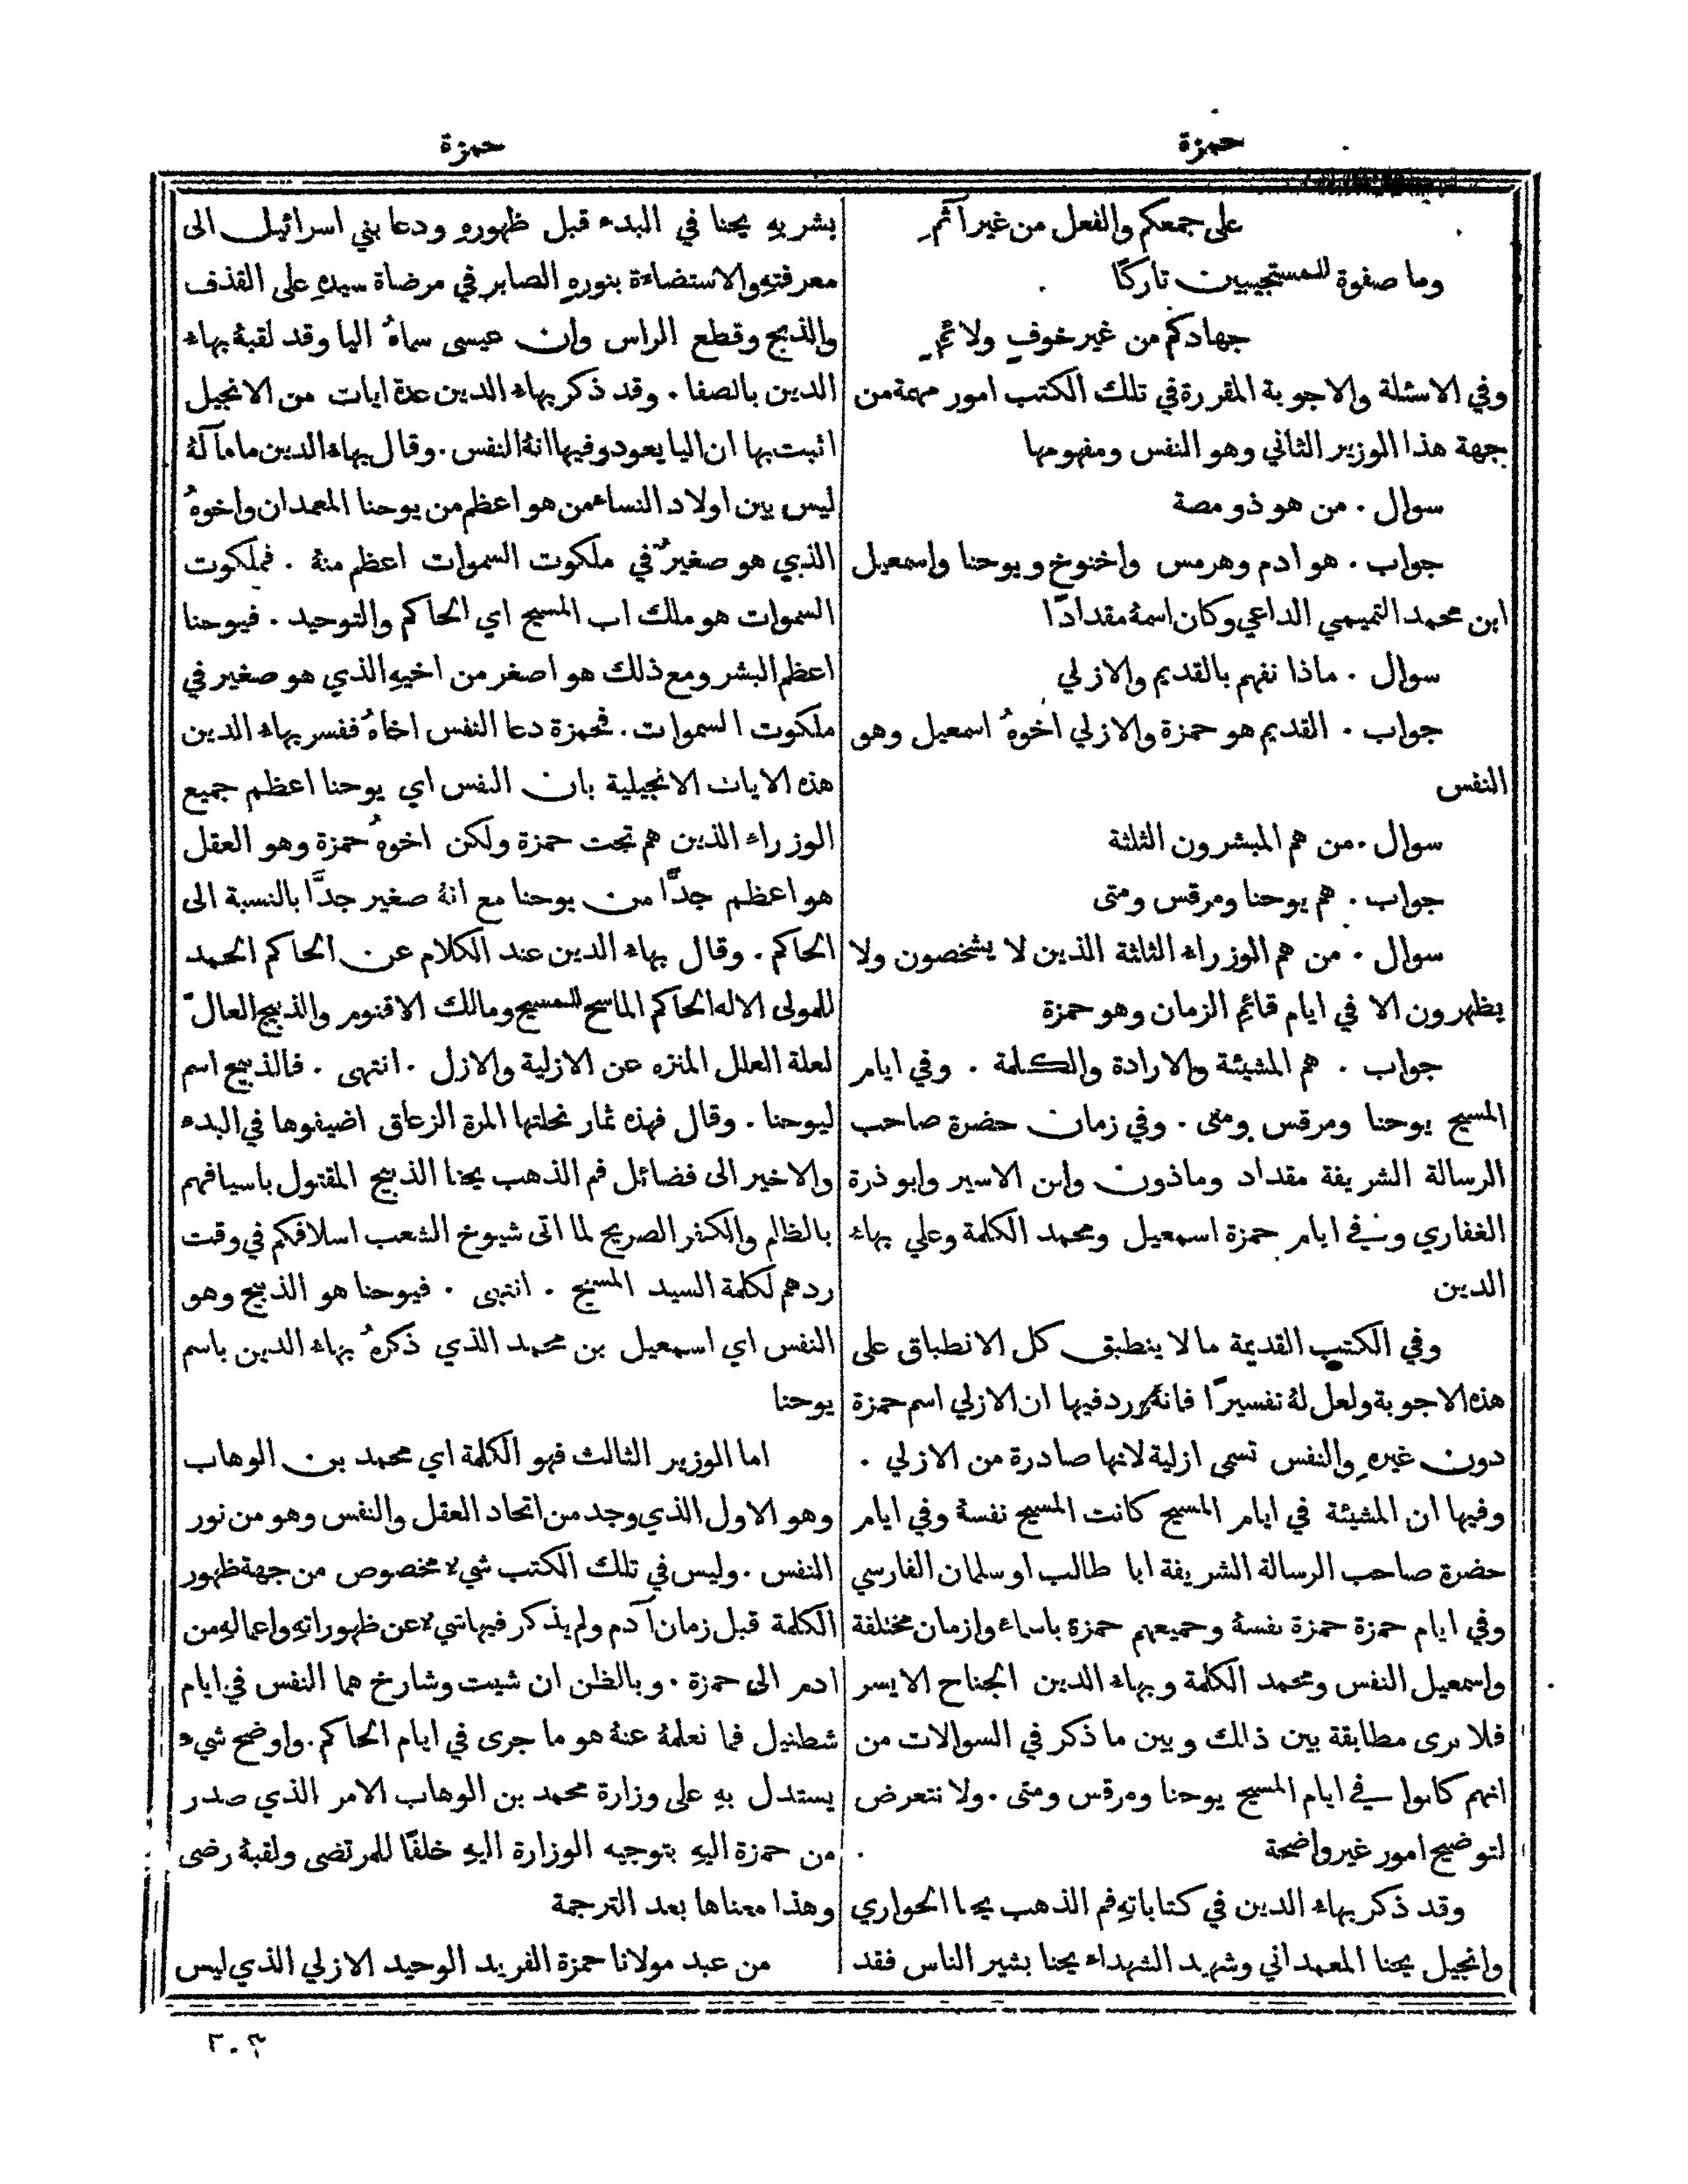 حمزة
حمزة
على جمعكم والفعل من غير آثم
وما صفوة للمستجيبين تاركًا
جهادكم من غير خوف ولا
وفي الاسئلة والاجوبة المقررة في تلك الكتب امور مهمة من
جهة هذا الوزير الثاني وهو النفس ومفهومها
سوال . من هو ذو مصة
جواب . هو ادم وهرمس واخنوخ ويوحنا واسمعيل
ابن محمد التميمي الداعي وكان اسمهُ مقدادًا
سوال . ماذا نفهم بالقديم والازلي
جواب . القديم هو حمزة والازلي اخوهُ اسمعيل وهو
النفس
سوال . من هم المبشرون الثلثة
جواب . هم يوحنا ومرقس ومتى
سوال . من هم الوزراء الثلثة الذين لا يشخصون ولا
يظهرون الا في ايام قائم الزمان وهو حمزة
جواب . هم المشيئة والارادة والكلمة . وفي ايام
المسيح يوحنا ومرقس ومتى . وفي زمان حضرة صاحب
الرسالة الشريفة مقداد وماذون وابن الاسير وابو ذرة
الغفاري وفي ايام حمزة اسمعيل ومحمد الكلمة وعلي بهاء
الدين
وفي الكتب القديمة ما لا ينطبق كل الانطباق على
هذه الاجوبة ولعل لهُ تفسيرًا فانهُ ورد فيها ان الازلي اسم حمزة
دون غيرهِ والنفس تسمى ازلية لانها صادرة من الازلي .
وفيها ان المشيئة في ايام المسيح كانت المسيح نفسهُ وفي ايام
حضرة صاحب الرسالة الشريفة ابا طالب او سلمان الفارسي
وفي ايام حمزة حمزة نفسهُ وجميعهم حمزة باسماء وازمان مختلفة
واسمعيل النفس ومحمد الكلمة وبهاء الدين الجناح الايسر
فلا نرى مطابقة بين ذلك وبين ما ذكر في السوالات من
انهم كانوا في ايام المسيح يوحنا ومرقس ومتى . ولا نتعرض
لتوضيح امور غير واضحة
وقد ذكر بهاء الدين في كتاباتهِ فم الذهب يحنا الحواري
وانجيل يحنا المعمداني وشهيد الشهداء يحنا بشير الناس فقد
بشر بهِ يحنا في البدء قبل ظهورهِ ودعا بني اسرائيل الى
معرفتهِ والاستضاءة بنورهِ الصابر في مرضاة سيدهِ على القذف
والذبح وقطع الراس وان عيسى سماهُ اليا وقد لقبهُ بهاء
الدين بالصفا . وقد ذكر بهاء الدين عدة ايات من الانجيل
اثبت بها ان اليا يعود وفيها انهُ النفس . وقال بهاء الدين ما مآلهُ
ليس بين اولاد النساء من هو اعظم من يوحنا المعمدان واخوهُ
الذي هو صغيرٌ في ملكوت السموات اعظم منهُ . فملكوت
السموات هو ملك اب المسيح اي الحاكم والتوحيد . فيوحنا
اعظم البشر ومع ذلك هو اصغر من اخيهِ الذي هو صغير في
ملكوت السموات . فحمزة دعا النفس اخاهُ ففسر بهاء الدين
هذه الايات الانجيلية بان النفس اي يوحنا اعظم جميع
الوزراء الذين هم تحت حمزة ولكن اخوهُ حمزة وهو العقل
هو اعظم جدًّا من يوحنا مع انهُ صغير جدًّا بالنسبة الى
الحاكم . وقال بهاء الدين عند الكلام عن الحاكم الحمد
للمولى الاله الحاكم الماسح للمسيح ومالك الاقنوم والذبيح العال
لعلة العلل المنزه عن الازلية والازل . انتهى . فالذبيح اسم
ليوحنا . وقال فهذه ثمار نحلتها المرة الزعاق اضيفوها في البدء
والاخير الى فضائل فم الذهب يحنا الذبيح المقتول باسيافهم
بالظلم والكفر الصريح لما اتى شيوخ الشعب اسلافكم في وقت
ردهم لكلمة السيد المسيح . انتهى . فيوحنا هو الذبيح وهو
النفس اي اسمعيل بن محمد الذي ذكرهُ بهاء الدين باسم
يوحنا
اما الوزير الثالث فهو الكلمة اي محمد بن الوهاب
وهو الاول الذي وجد من اتحاد العقل والنفس وهو من نور
النفس . وليس في تلك الكتب شيء مخصوص من جهة ظهور
الكلمة قبل زمان آدم ولم يذكر فيها شيء عن ظهوراتهِ واعمالهِ من
ادم الى حمزة . وبالظن ان شيت وشارخ هما النفس في ايام
شطنيل فما نعلمهُ عنهُ هو ما جرى في ايام الحاكم . واوضح شيء
يستدل بهِ على وزارة محمد بن الوهاب الامر الذي صدر
من حمزة اليهِ بتوجيه الوزارة اليهِ خلفًا للمرتضى ولقبهُ رضى
وهذا معناها بعد الترجمة
من عبد مولانا حمزة الفريد الوحيد الازلي الذي ليس